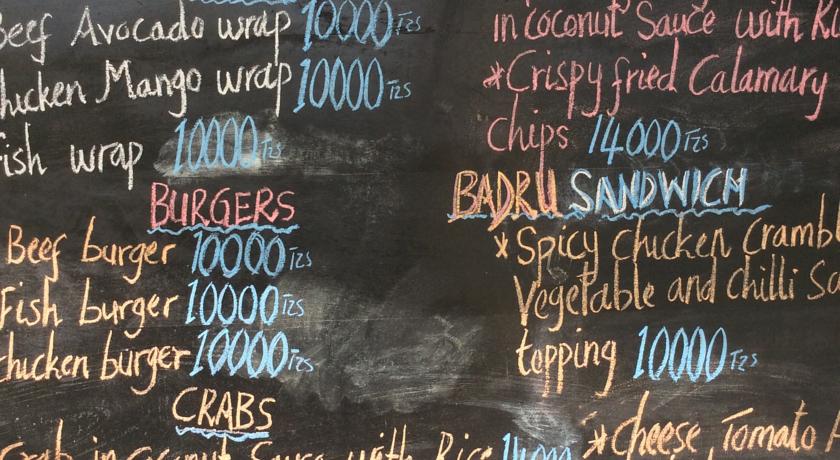 Beef Avocado wrap 10000 Tzs
Chicken Mango wrap 10000 Tzs
Fish wrap 10000 Tzs
BURGERS
Beef burger 10000 Tzs
Fish burger 10000 Tzs
Chicken burger 10000 Tzs
CRABS
Crab in coconut Sauce with Rice 14000
in coconut Sauce with
*Crispy fried Calamary
chips 14000 Tzs
BADRU SANDWICH
*Spicy chicken Crambl
Vegetable and chilli
topping 10000 Tzs
*Cheese, Tomato